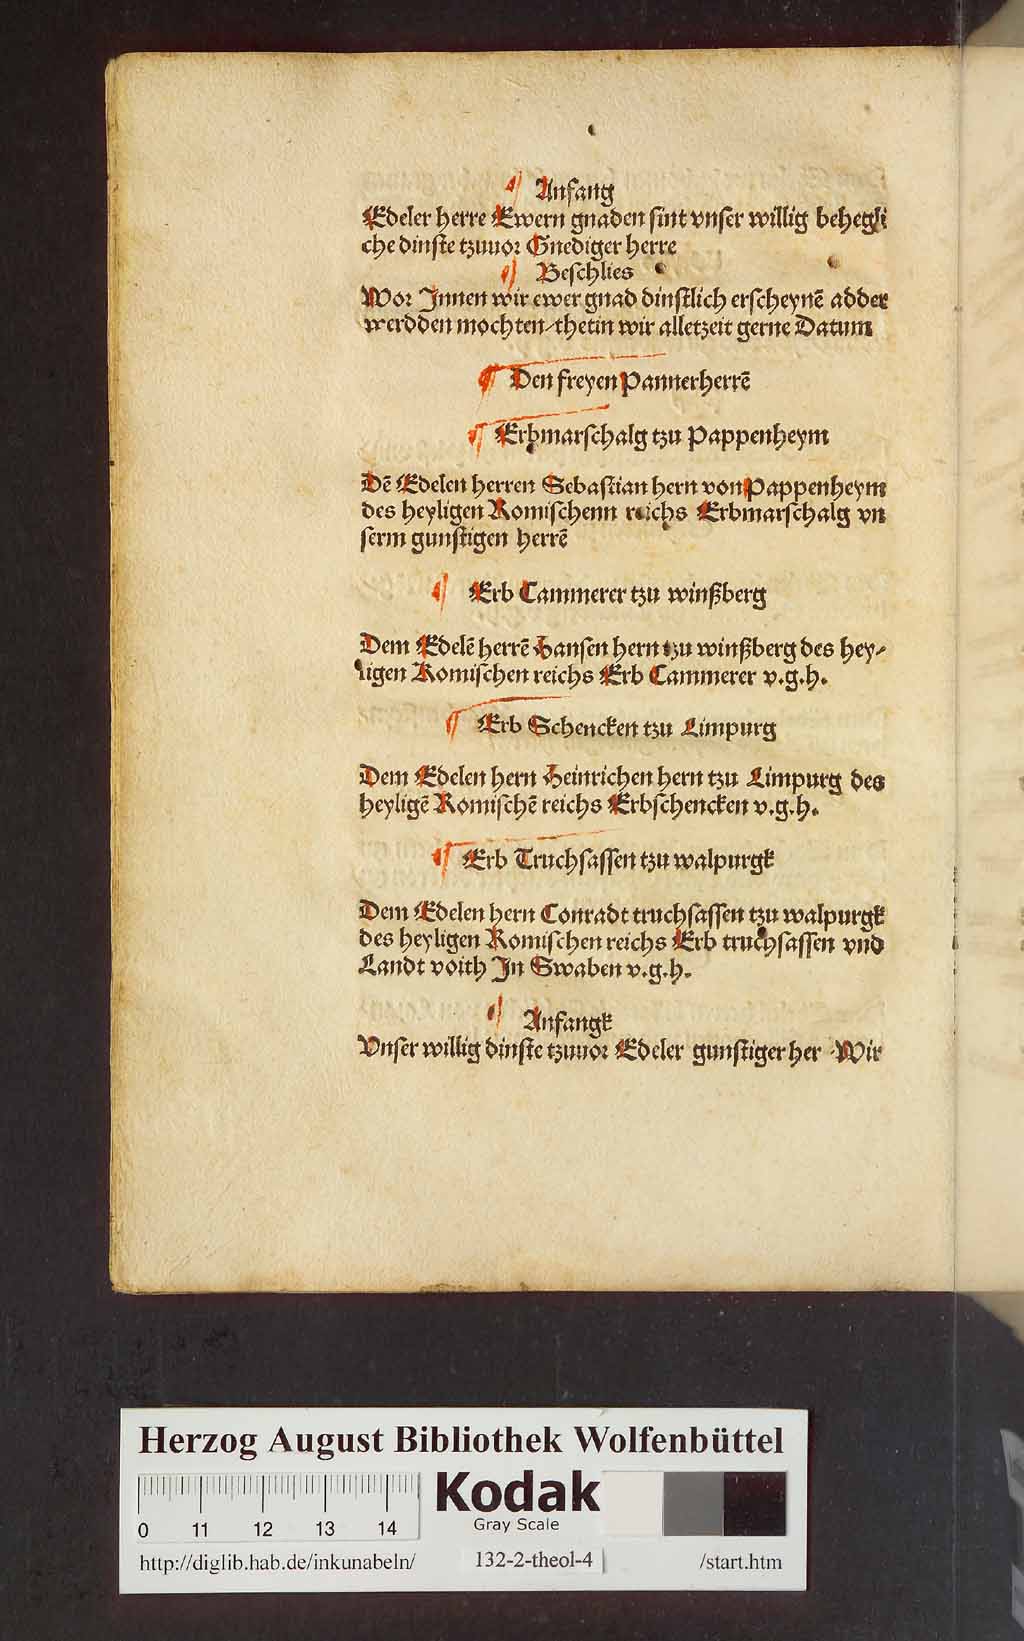 Anfang
Edeler herre Ewern gnaden sint vnser willig behegli
che dinste tzuuor Gnediger herre
Beschlies
Wor Jnnen wir ewer gnad dinstlich erscheynē adder
werdden mochten/thetin wir alletzeit gerne Datum
Den freyen Pannerherrē
Erbmarschalg tzu Pappenheym
Dē Edelen herren Sebastian hern von Pappenheym
des heyligen Romischenn reichs Erbmarschalg vn
serm gunstigen herrē
Erb Cammerer tzu winßberg
Dem Edelē herrē Hansen hern tzu winßberg des hey/
ligen Romischen reichs Erb Cammerer v.g.h.
Erb Schencken tzu Limpurg
Dem Edelen hern Heinrichen hern tzu Limpurg des
heyligē Romischē reichs Erbschencken v.g.h.
Erb Truchsassen tzu walpurgk
Dem Edelen hern Conradt truchsassen tzu walpurgk
des heyligen Romischen reichs Erb truchsassen vnd
Landt voith Jn Swaben v.g.h.
Anfangk
Vnser willig dinste tzuuor Edeler gunstiger her Wir
Herzog August Bibliothek Wolfenbüttel
Kodak
Gray Scale
0 11 12 13 14
http://diglib.hab.de/inkunabeln/ 132-2-theol-4 /start.htm